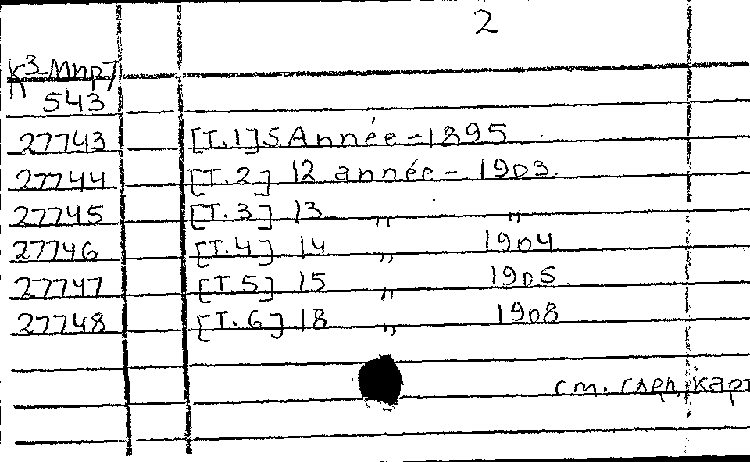 2
к3-Мир7
П 543
27743 [Т.1] 5 Année - 1895
27744 [Т.2] 12 année - 1903.
27745 [Т.3] 13 „ „
27746 [Т.4] 14 „ 1904
27747 [Т.5] 15 „ 1905
27748 [Т.6] 18 „ 1908
см. след. карт